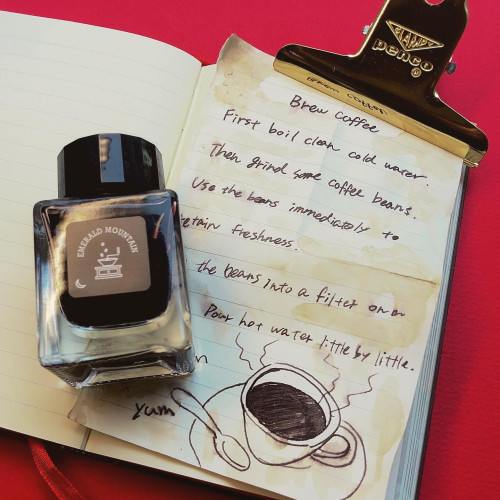 CLAMPY
penco®
Brew Coffee
Brew Coffee
First boil clean cold water.
Then grind some coffee beans.
Use the beans immediately to
retain freshness.
the beans into a filter on a
Pour hot water little by little.
n
Yum
EMERALD MOUNTAIN